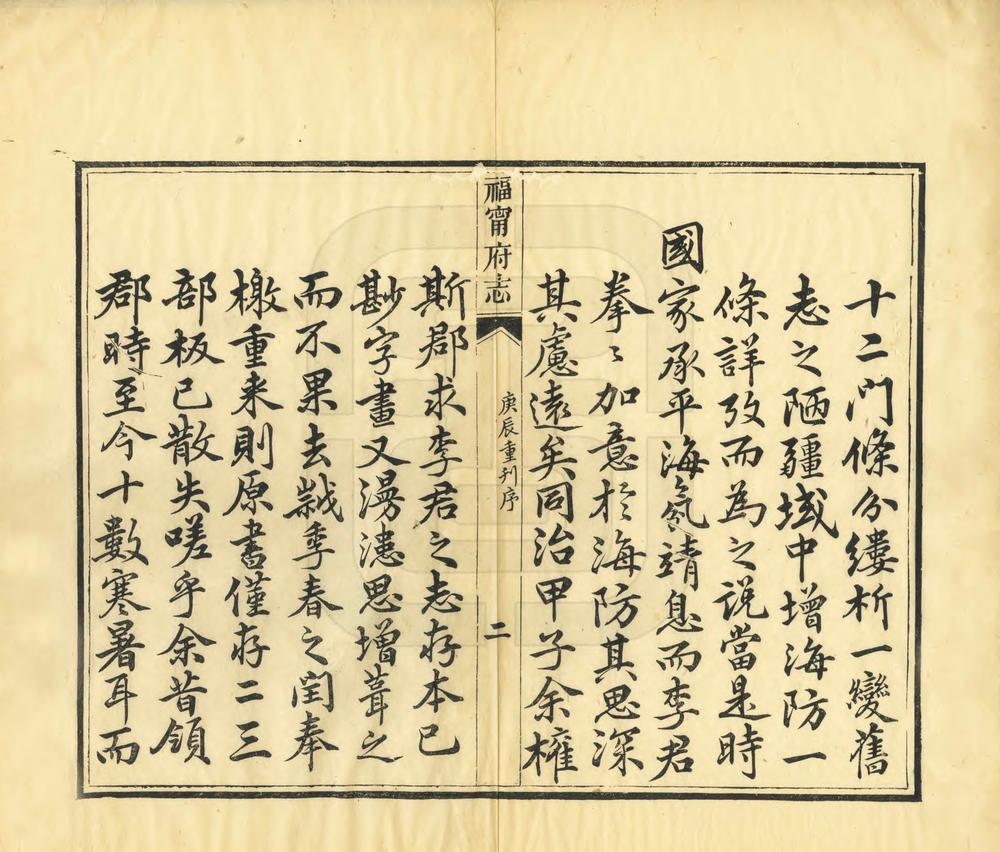 十二門條分縷析一變舊
志之陋疆域中增海防一
條詳攷而為之說當是時
國家承平海氛靖息而李君
拳〻加意於海防其思深
其慮遠矣同治甲子余権
福甯府志
庚辰重刊序
二
斯郡求李君之志存本已
尠字畫又漫漶思增葺之
而不果去歲季春之閏奉
檄重来則原書僅存二三
部板已散失嗟乎余昔領
郡時至今十數寒暑耳而